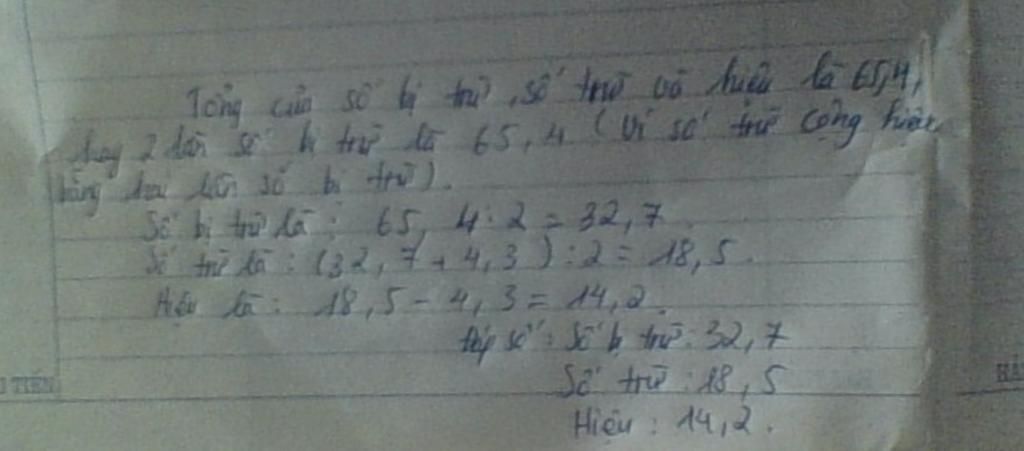 Tổng của số bị trừ, số trừ và hiệu là 65,4,
hay 2 lần số bị trừ là 65,4 (Vì số trừ cộng hiệu
bằng hai lần số bị trừ).
Số bị trừ là: 65,4:2=32,7
Số trừ là: (32,7+4,3):2=18,5.
Hiệu là: 18,5-4,3=14,2.
Đáp số: Số bị trừ: 32,7
Số trừ: 18,5
Hiệu: 14,2.
TIẾN